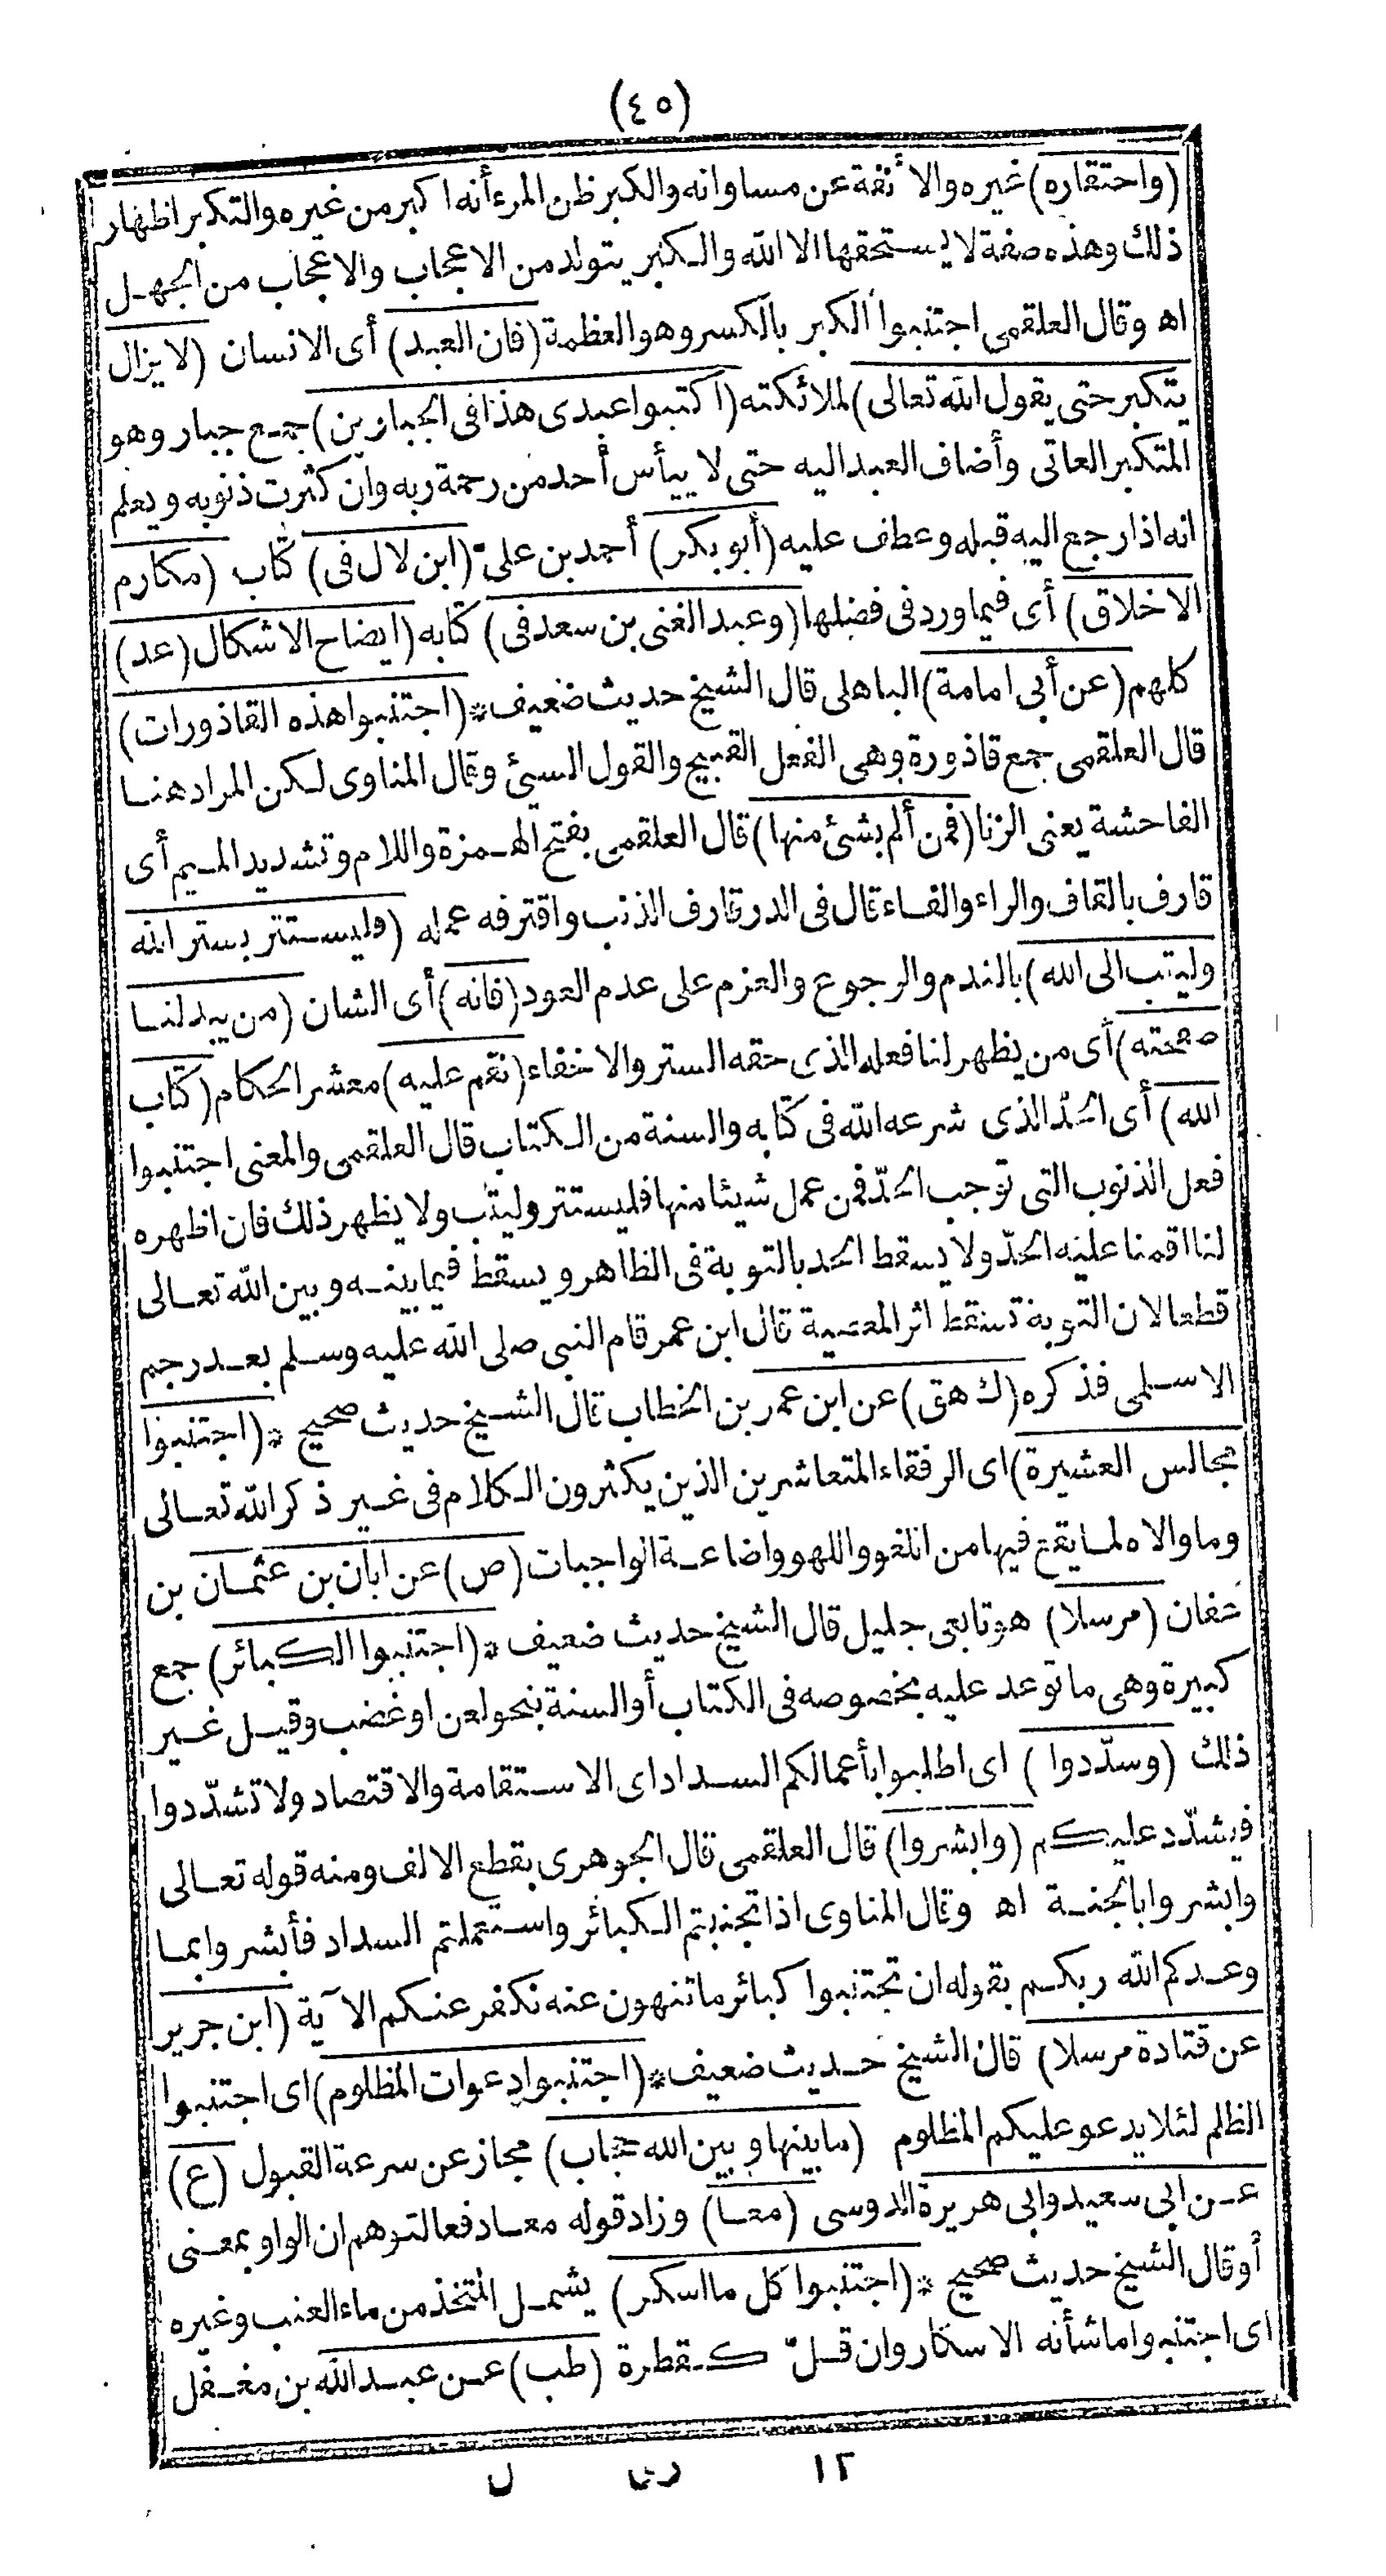 (٤٥)
(واحتقاره) غيره والأنفة عن مساواته والكبر ظن المرء أنه اكبر من غيره والتكبر اظهار
ذلك وهذه صفة لا يستحقها الا الله والكبر يتولد من الاعجاب والاعجاب من الجهل
اه وقال العلقمى اجتنبوا الكبر بالكسر وهو العظمة (فان العبد) أى الانسان (لا يزال
يتكبر حتى يقول الله تعالى) لملائكته (اكتبوا عبدى هذا فى الجبارين) جمع جبار وهو
المتكبر العاتى وأضاف العبد اليه حتى لا ييأس أحد من رحمة ربه وان كثرت ذنوبه ويعلم
انه اذا رجع اليه قبله وعطف عليه (أبو بكر) أحمد بن علىّ (ابن لال فى) كتاب (مكارم
الاخلاق) أى فيما ورد فى فضلها (وعبد الغنى بن سعد فى) كتابه (ايضاح الاشكال (عد)
كلهم (عن أبى امامة) الباهلى قال الشيخ حديث ضعيف * (اجتنبوا هذه القاذورات)
قال العلقمى جمع قاذورة وهى الفعل القبيح والقول السيئ وقال المناوى لكن المراد هنا
الفاحشة يعنى الزنا (فمن ألم بشئ منها) قال العلقمى بفتح الهمزة واللام وتشديد الميم أى
قارف بالقاف والراء والفاء قال فى الدر قارف الذنب واقترفه عمله (فليستتر بستر الله
وليتب الى الله) بالندم والرجوع والعزم على عدم العود (فانه) أى الشان (من يبد لنا
صفحته) أى من يظهر لنا فعله الذى حقه الستر والاخفاء (نقم عليه) معشر الحكام (كتاب
الله) أى الحدّ الذى شرعه الله فى كتابه والسنة من الكتاب قال العلقمى والمعنى اجتنبوا
فعل الذنوب التى توجب الحدّ فمن عمل شيئا منها فليستتر وليتب ولا يظهر ذلك فان اظهره
لنا اقمنا عليه الحدّ ولا يسقط الحد بالتوبة فى الظاهر ويسقط فيما بينه وبين الله تعالى
قطعا لان التوبة تسقط اثر المعصية قال ابن عمر قام النبى صلى الله عليه وسلم بعد رجم
الاسلمى فذكره (ك هق) عن ابن عمر بن الخطاب قال الشيخ حديث صحيح * (اجتنبوا
مجالس العشيرة) اى الرفقاء المتعاشرين الذين يكثرون الكلام فى غير ذكر الله تعالى
وما والاه لما يقع فيها من اللغو واللهو واضاعة الواجبات (ص) عن ابان بن عثمان بن
عفان (مرسلا) هو تابعى جليل قال الشيخ حديث ضعيف * (اجتنبوا الكبائر) جمع
كبيرة وهى ما توعد عليه بخصوصه فى الكتاب أو السنة بنحو لعن او غضب وقيل غير
ذلك (وسدّدوا) اى اطلبوا بأعمالكم السداد اى الاستقامة والاقتصاد ولا تشدّدوا
فيشدّد عليكم (وابشروا) قال العلقمى قال الجوهرى بقطع الالف ومنه قوله تعالى
وابشروا بالجنة اه وقال المناوى اذا تجنبتم الكبائر واستعملتم السداد فأبشروا بما
وعدكم الله ربكم بقوله ان تجتنبوا كبائر ما تنهون عنه نكفر عنكم الآية (ابن جرير
عن قتادة مرسلا) قال الشيخ حديث ضعيف * (اجتنبوا دعوات المظلوم) اى اجتنبوا
الظلم لئلا يدعو عليكم المظلوم (ما بينها وبين الله حجاب) مجاز عن سرعة القبول (ع)
عن ابى سعيد وابى هريرة الدوسى (معا) وزاد قوله معا دفعا لتوهم ان الواو بمعنى
أو قال الشيخ حديث صحيح * (اجتنبوا كل ما اسكر) يشمل المتخذ من ماء العنب وغيره
اى اجتنبوا ما شأنه الاسكار وان قلّ كقطرة (طب) عن عبد الله بن مغفل
١٢ زى ل